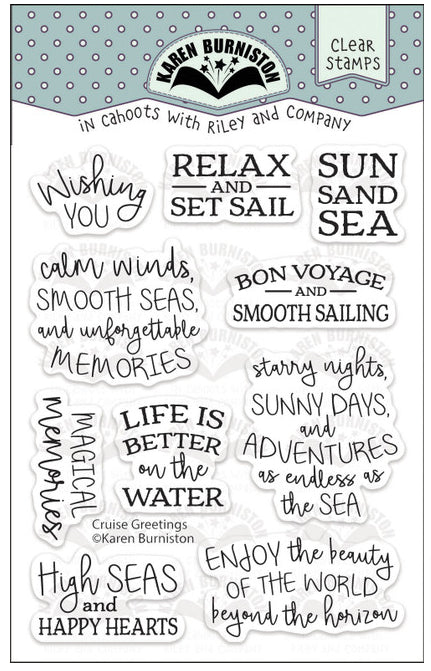 KAREN BURNISTON
CLEAR
STAMPS
iN CAHOOTS WiTH RiLEY AND COMPANY
Wishing
YOU
RELAX
AND
SET SAIL
SUN
SAND
SEA
calm winds,
SMOOTH SEAS,
and unforgettable
MEMORIES
BON VOYAGE
AND
SMOOTH SAILING
starry nights,
SUNNY DAYS,
and
ADVENTURES
as endless as
the SEA
MAGICAL
memories
LIFE IS
BETTER
on the
WATER
Cruise Greetings
©Karen Burniston
High SEAS
and
HAPPY HEARTS
ENJOY the beauty
OF THE WORLD
beyond the horizon